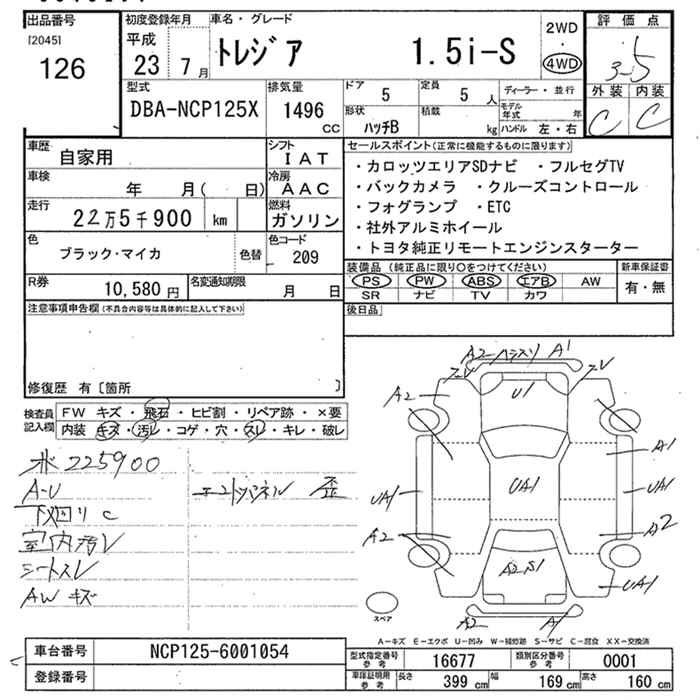 出品番号
[2045]
126
初度登録年月
平成
23 7月
車名・グレード
トレジア 1.5i-S
2WD
・
4WD
評価点
3.5
外装 内装
C C
型式
DBA-NCP125X
排気量
1496
CC
ドア
5
定員
5 人
形状
ハッチB
積載
kg
ディーラー・並行
モデル
年式 年
ハンドル 左・右
車歴
自家用
シフト
IAT
車検
年 月( 日)
冷房
AAC
走行
22万5千900 km
燃料
ガソリン
色
ブラック・マイカ
色替
色コード
209
R券
10,580 円
名変通知期限
月 日
セールスポイント(正常に機能するものに限ります)
・カロッツエリアSDナビ ・フルセグTV
・バックカメラ ・クルーズコントロール
・フォグランプ ・ETC
・社外アルミホイール
・トヨタ純正リモートエンジンスターター
装備品 (純正品に限り○をつけてください)
PS PW ABS エアB AW
SR ナビ TV カワ
新車保証書
有・無
後日品
注意事項申告欄(不具合内容等は具体的に記入して下さい)
修復歴 有〔箇所 〕
検査員
記入欄
FW キズ・飛石・ヒビ割・リペア跡・×要
内装 キズ・汚レ・コゲ・穴・スレ・キレ・破レ
225900
A-U
下回りC
室内汚レ
シートスレ
AWキズ
歪
A2 A1
A2 U1
A1
UA1 UA1 UA1
A2 A2
A2 S1 UA1
A2 A1
スペア
A-キズ E-エクボ U-凹み W-補修跡 S-サビ C-腐食 XX-交換済
車台番号
NCP125-6001054
登録番号
型式指定番号
参考
16677
類別区分番号
参考
0001
車庫証明用
参考
長さ 399 cm 幅 169 cm 高さ 160 cm